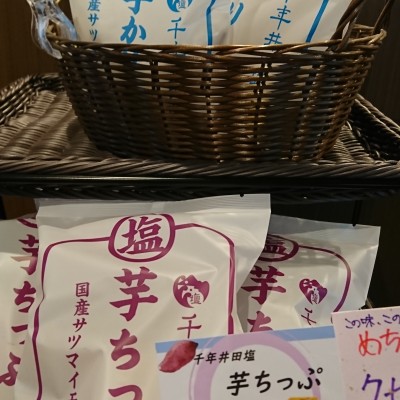 芋か
千
国産サツ
千年井
塩
芋ちっ
国産サツマイモ
塩
千
芋ちっぷ
芋ち
千年井田塩
芋ちっぷ
この味、この
めち